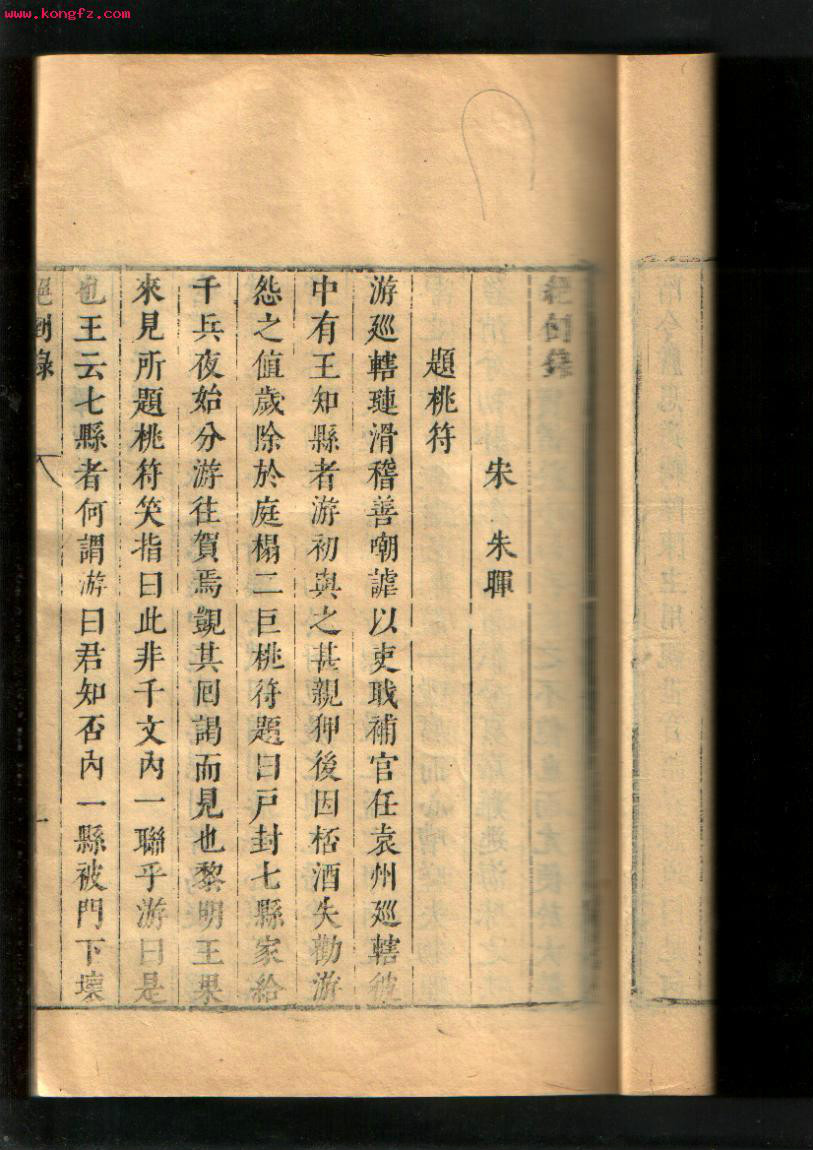 www.kongfz.com
絕倒錄
宋 朱暉
題桃符
游廵轄璉滑稽善嘲謔以吏職補官任袁州廵轄彼
中有王知縣者游初與之甚親狎後因桮酒失勸游
怨之值歲除於庭榻二巨桃符題曰戸封七縣家給
千兵夜始分游往賀焉覬其回謁而見也黎明王果
來見所題桃符笑指曰此非千文內一聯乎游曰是
也王云七縣者何謂游曰君知否內一縣被門下壞
絕倒錄